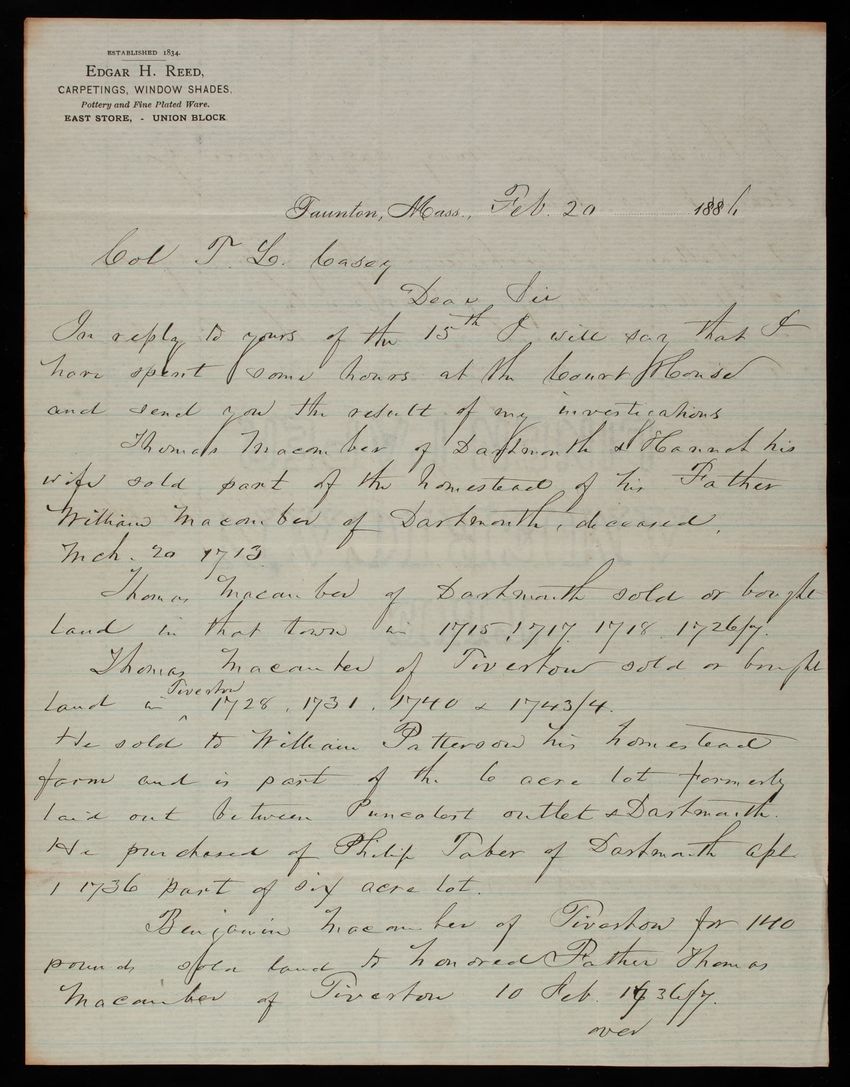 ESTABLISHED 1834.
EDGAR H. REED,
CARPETINGS, WINDOW SHADES,
Pottery and Fine Plated Ware.
EAST STORE, - UNION BLOCK
Taunton, Mass., Feb. 20 1886
Col T. L. Casey
Dear Sir
In reply to yours of the 15th I will say that I
have spent some hours at the Court House
and send you the result of my investigations
Thomas Macomber of Dartmouth & Hannah his
wife sold part of the homestead of his Father
William Macomber of Dartmouth, deceased,
Mch. 20 1713
Thomas Macomber of Dartmouth sold or bought
land in that town in 1715, 1717, 1718, 1726/7.
Thomas Macomber of Tiverton sold or bought
land in Tiverton 1728, 1731, 1740 & 1743/4.
He sold to William Patterson his homestead
farm and is part of the 6 acre lot formerly
laid out between outlet & Dartmouth.
He purchased of Philip Taber of Dartmouth Apl
1 1736 part of six acre lot.
Benjamin Macomber of Tiverton for 140
pounds sold land to honored Father Thomas
Macomber of Tiverton 10 Feb. 1736/7.
over